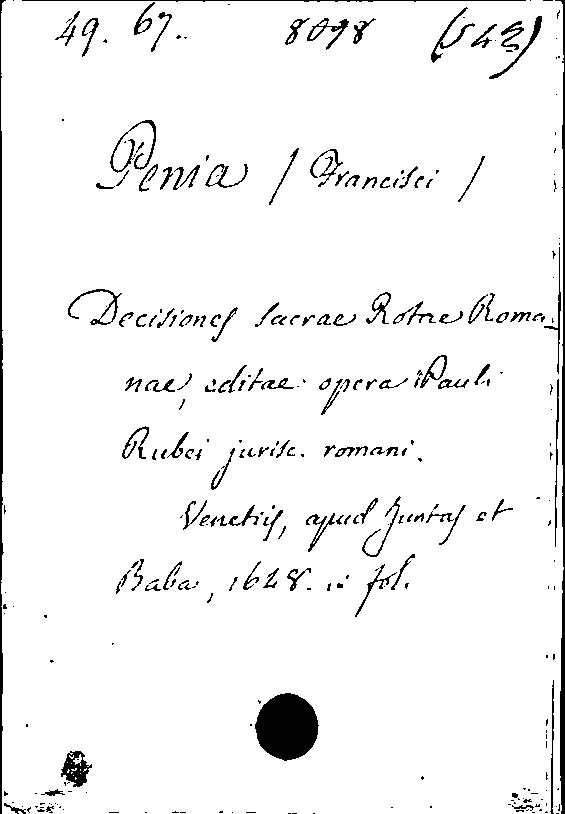 49. 67. 8098 (542)
Penia / Francisci /
Decisiones sacrae Rotae Roma-
nae, editae opera Pauli
Rubei jurisc. romani.
Venetiis, apud Juntas et
Baba, 1648. in fol.